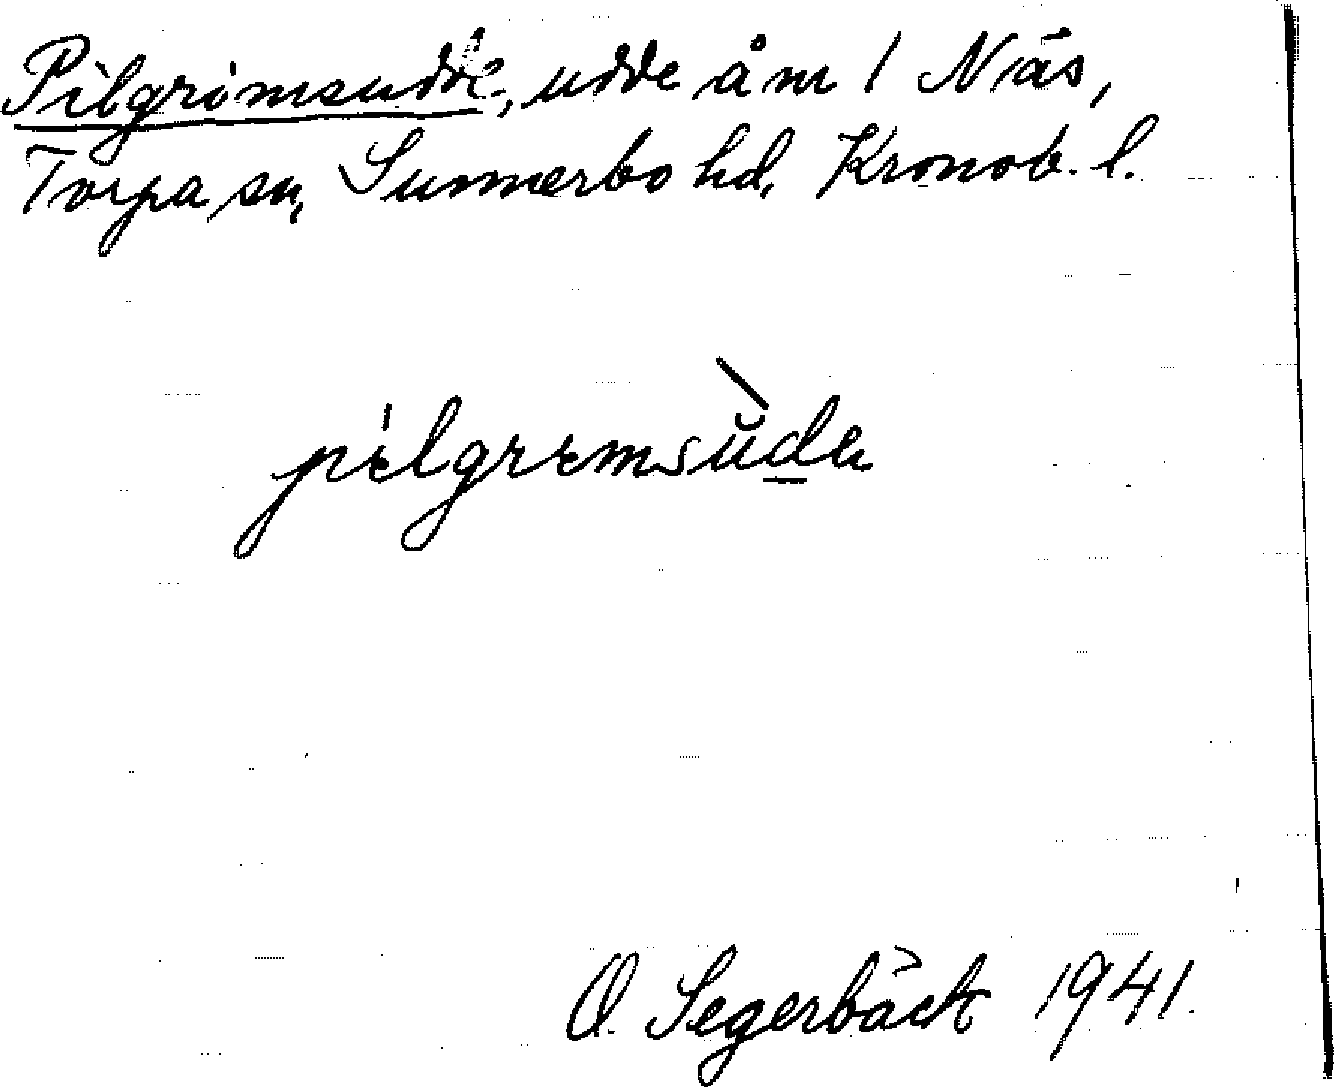 Pilgrimsudde, udde å nr 1 Näs,
Torpa sn, Sunnerbo hd, Kronob. l.
pilgremsùde
O. Segerbäck 1941.